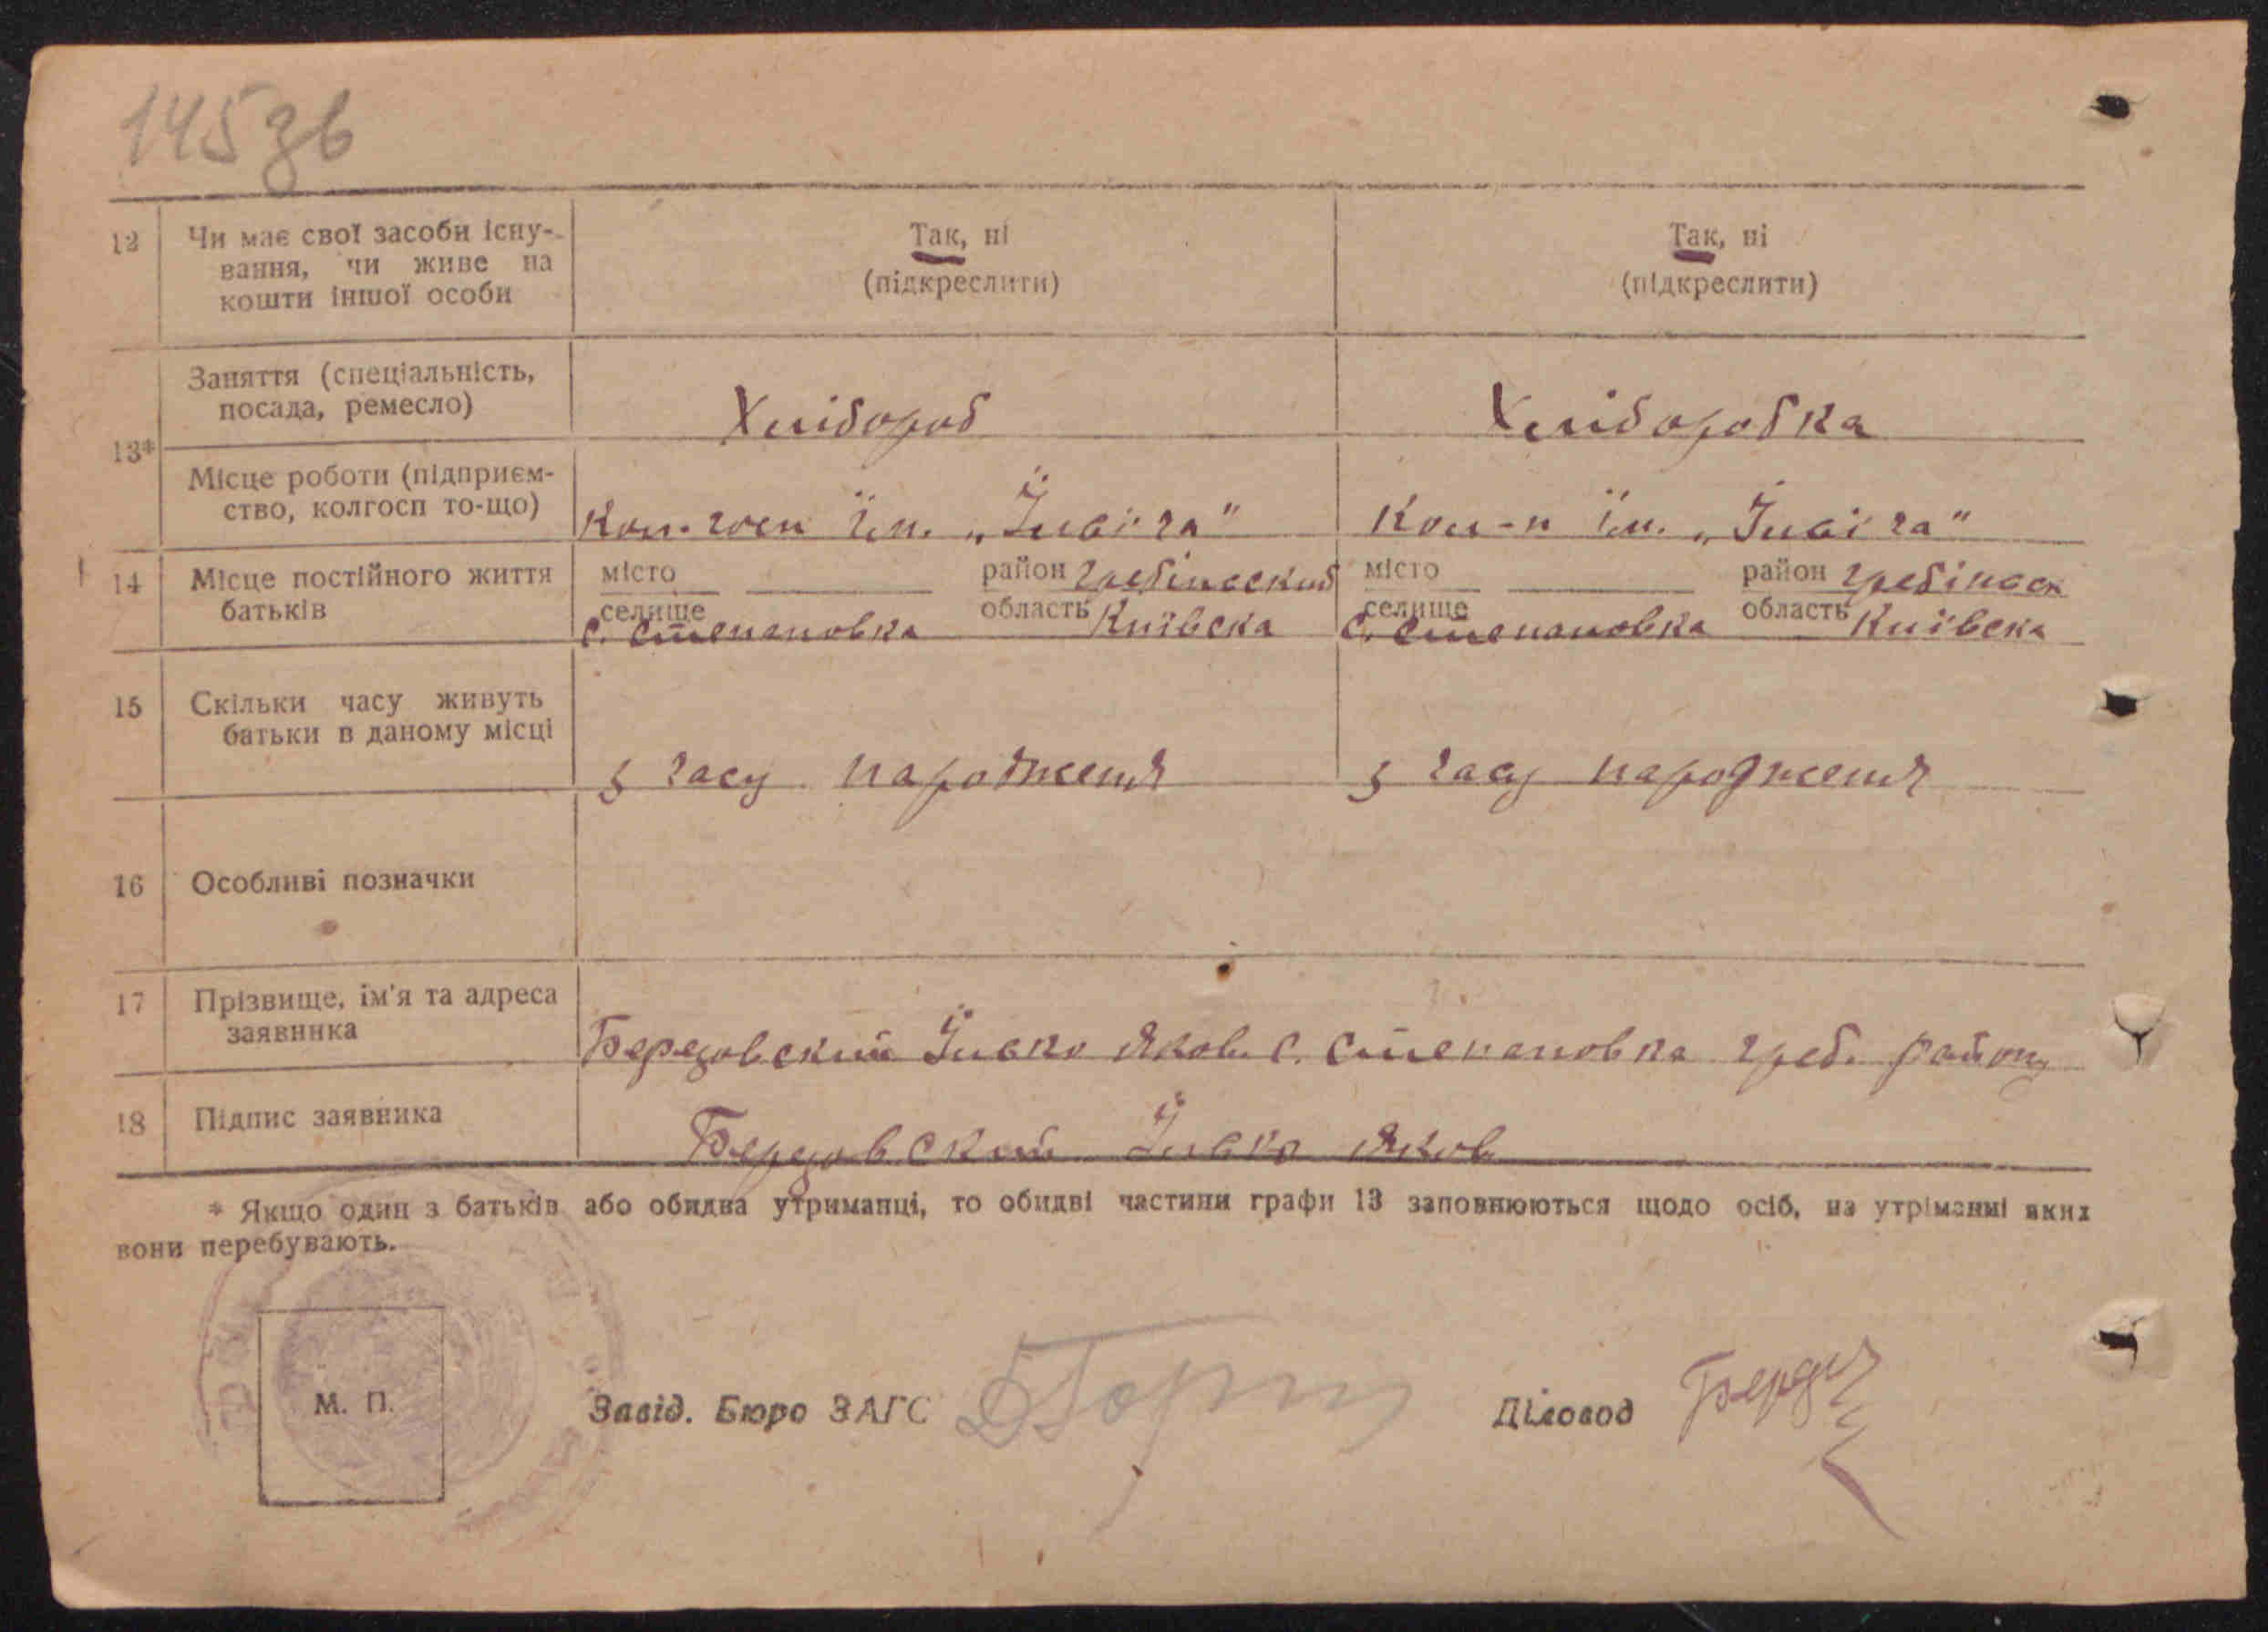 145зв
12 Чи має свої засоби існу- Так, ні Так, ні
вання, чи живе на (підкреслити) (підкреслити)
кошти іншої особи
13* Заняття (спеціальність, Хлібороб Хліборобка
посада, ремесло)
Місце роботи (підприєм- Кол-госп їм. Кол-п їм.
ство, колгосп то-що)
14 Місце постійного життя місто район Гребінаский місто район Гребінаск
батьків селище с. Степановка область Київска селище с. Степановка область Київска
15 Скільки часу живуть
батьки в даному місці
з часу народженя з часу народженя
16 Особливі позначки
17 Прізвище, ім'я та адреса
заявника
Березовский Яков. с. Степановка Греб. району
18 Підпис заявника Березовский Яков
* Якщо один з батьків або обидва утриманці, то обидві частини графи 13 заповнюються щодо осіб, на утріманні яких
вони перебувають.
М. П. Завід. Бюро ЗАГС Діловод